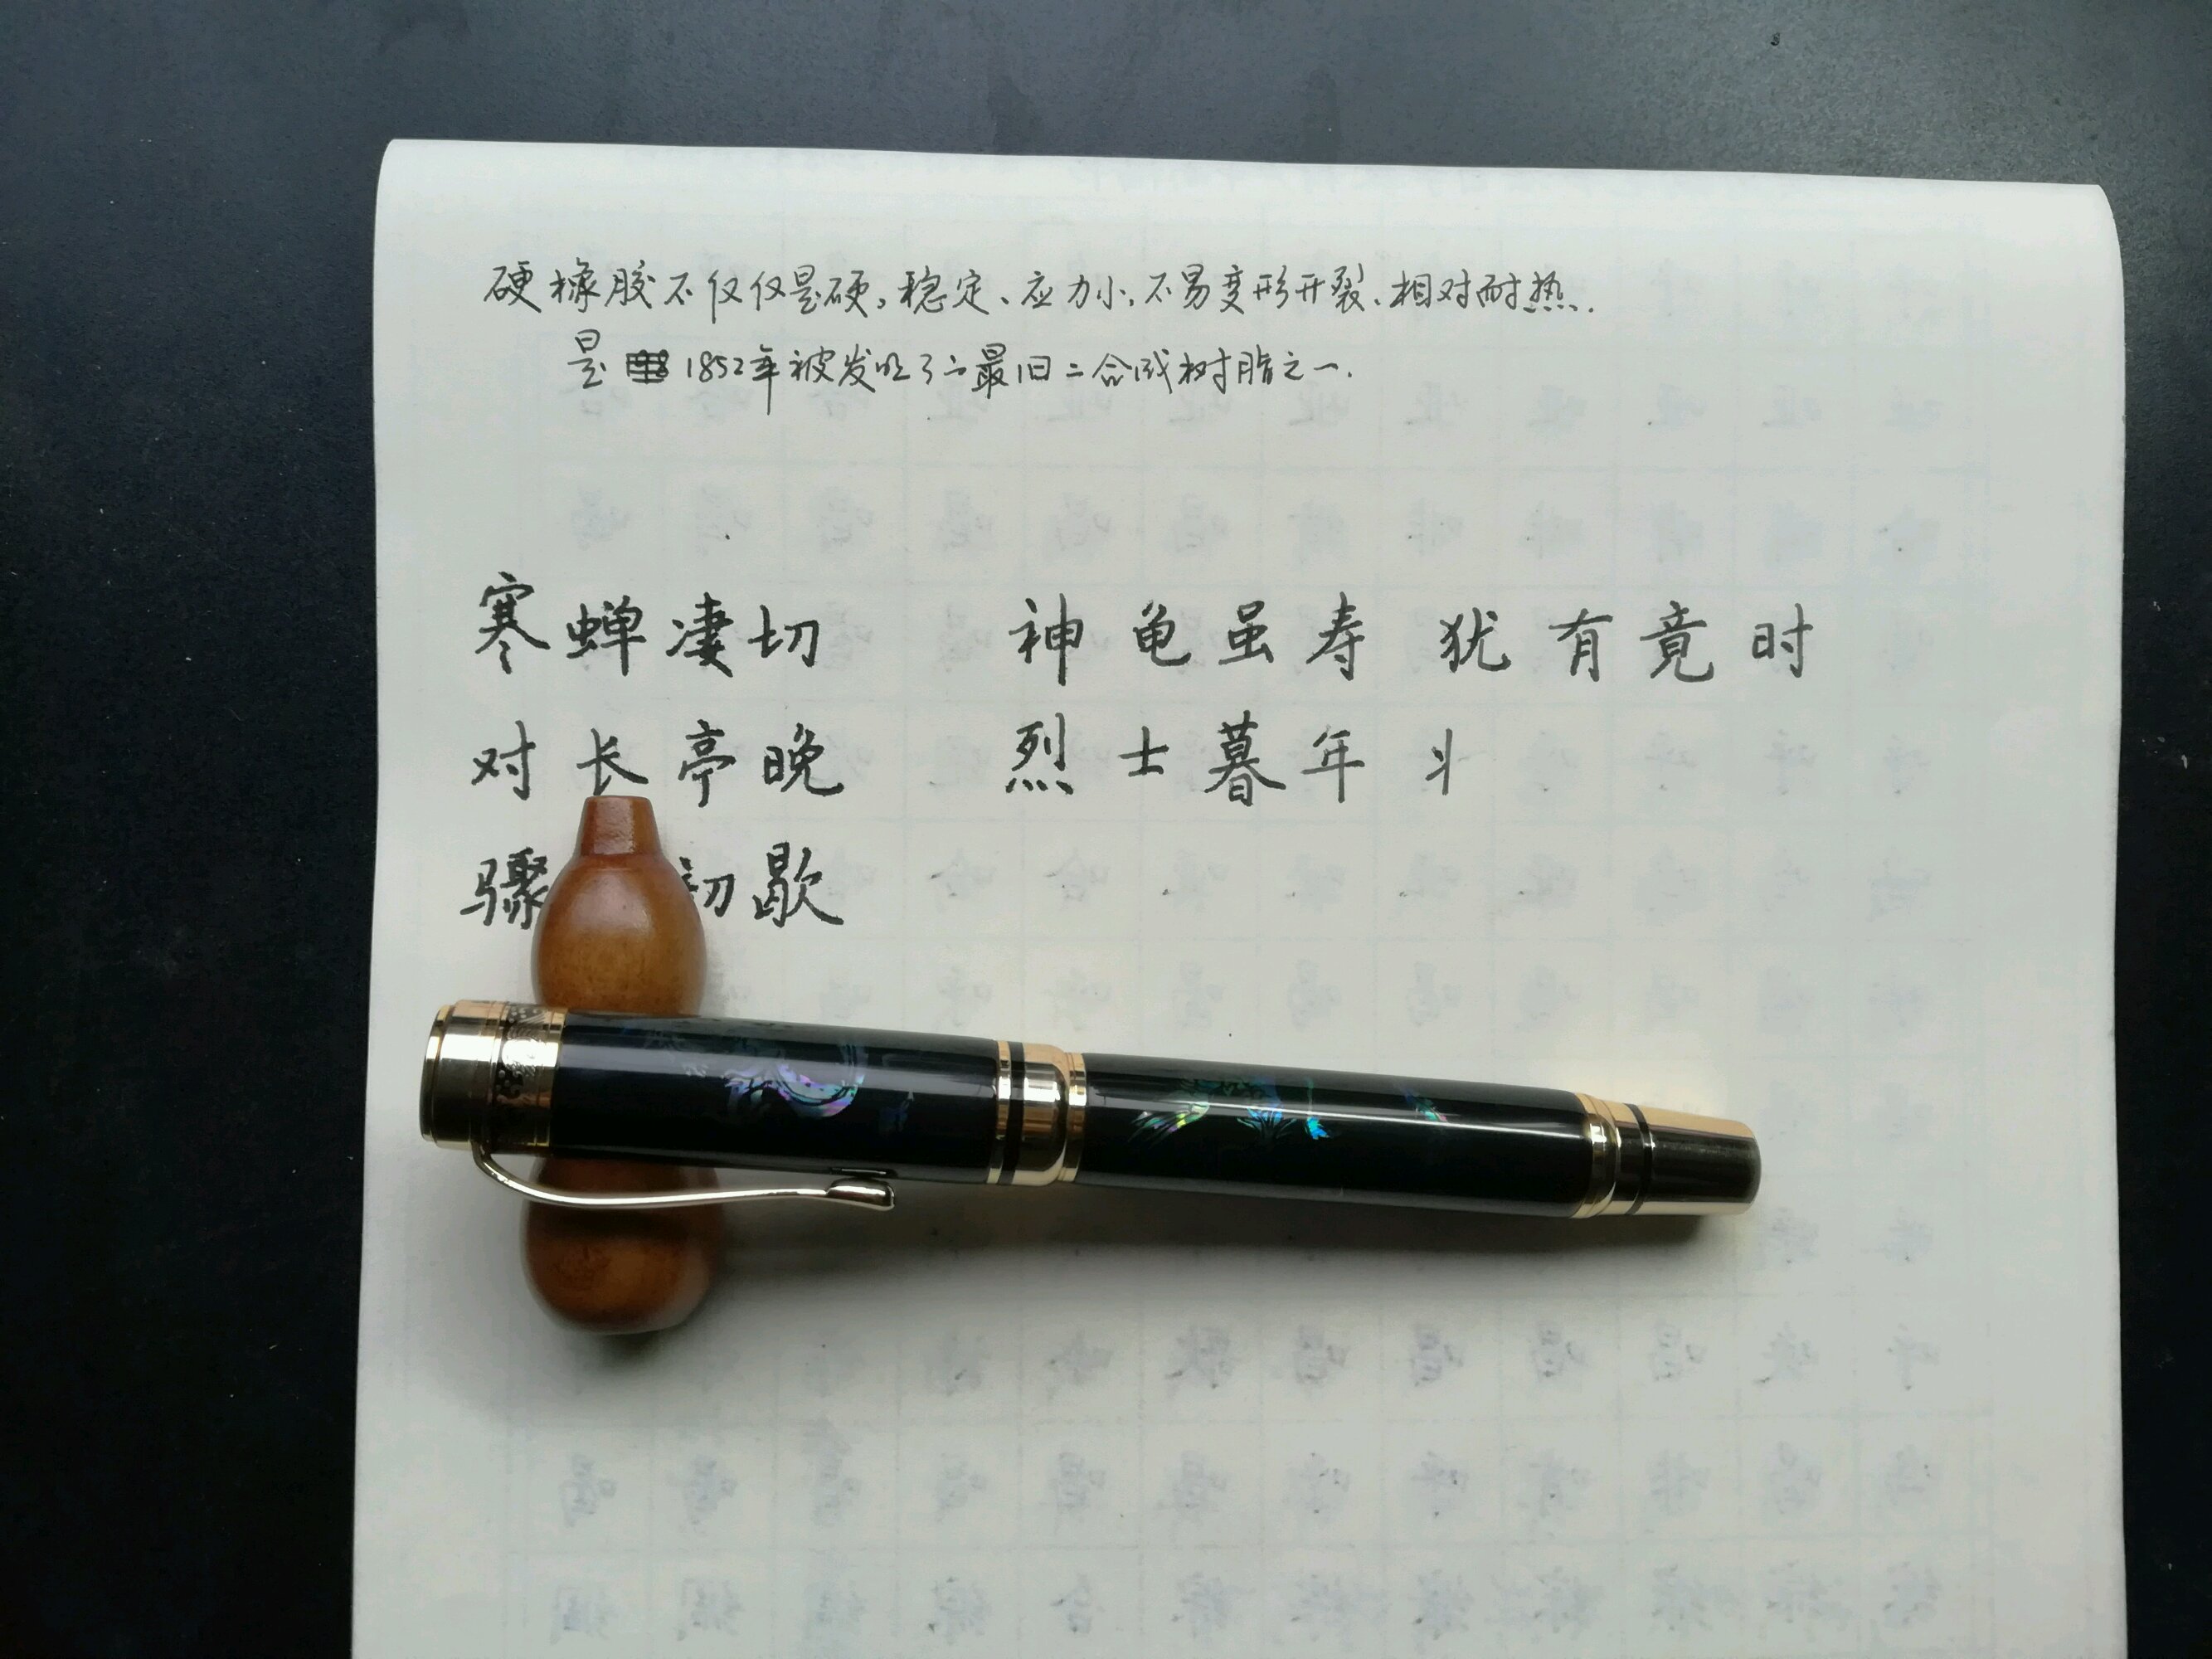 硬橡胶不仅仅是硬，稳定、应力小，不易变形开裂、相对耐热.
是 1852年被发明了 最旧 合成树脂之一.
寒蝉凄切
对长亭晚
骤 初歇
神龟虽寿 犹有竟时
烈士暮年